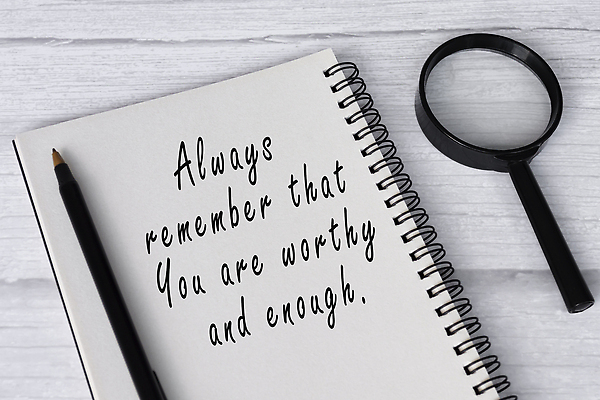 Always
remember that
You are worthy
and enough.